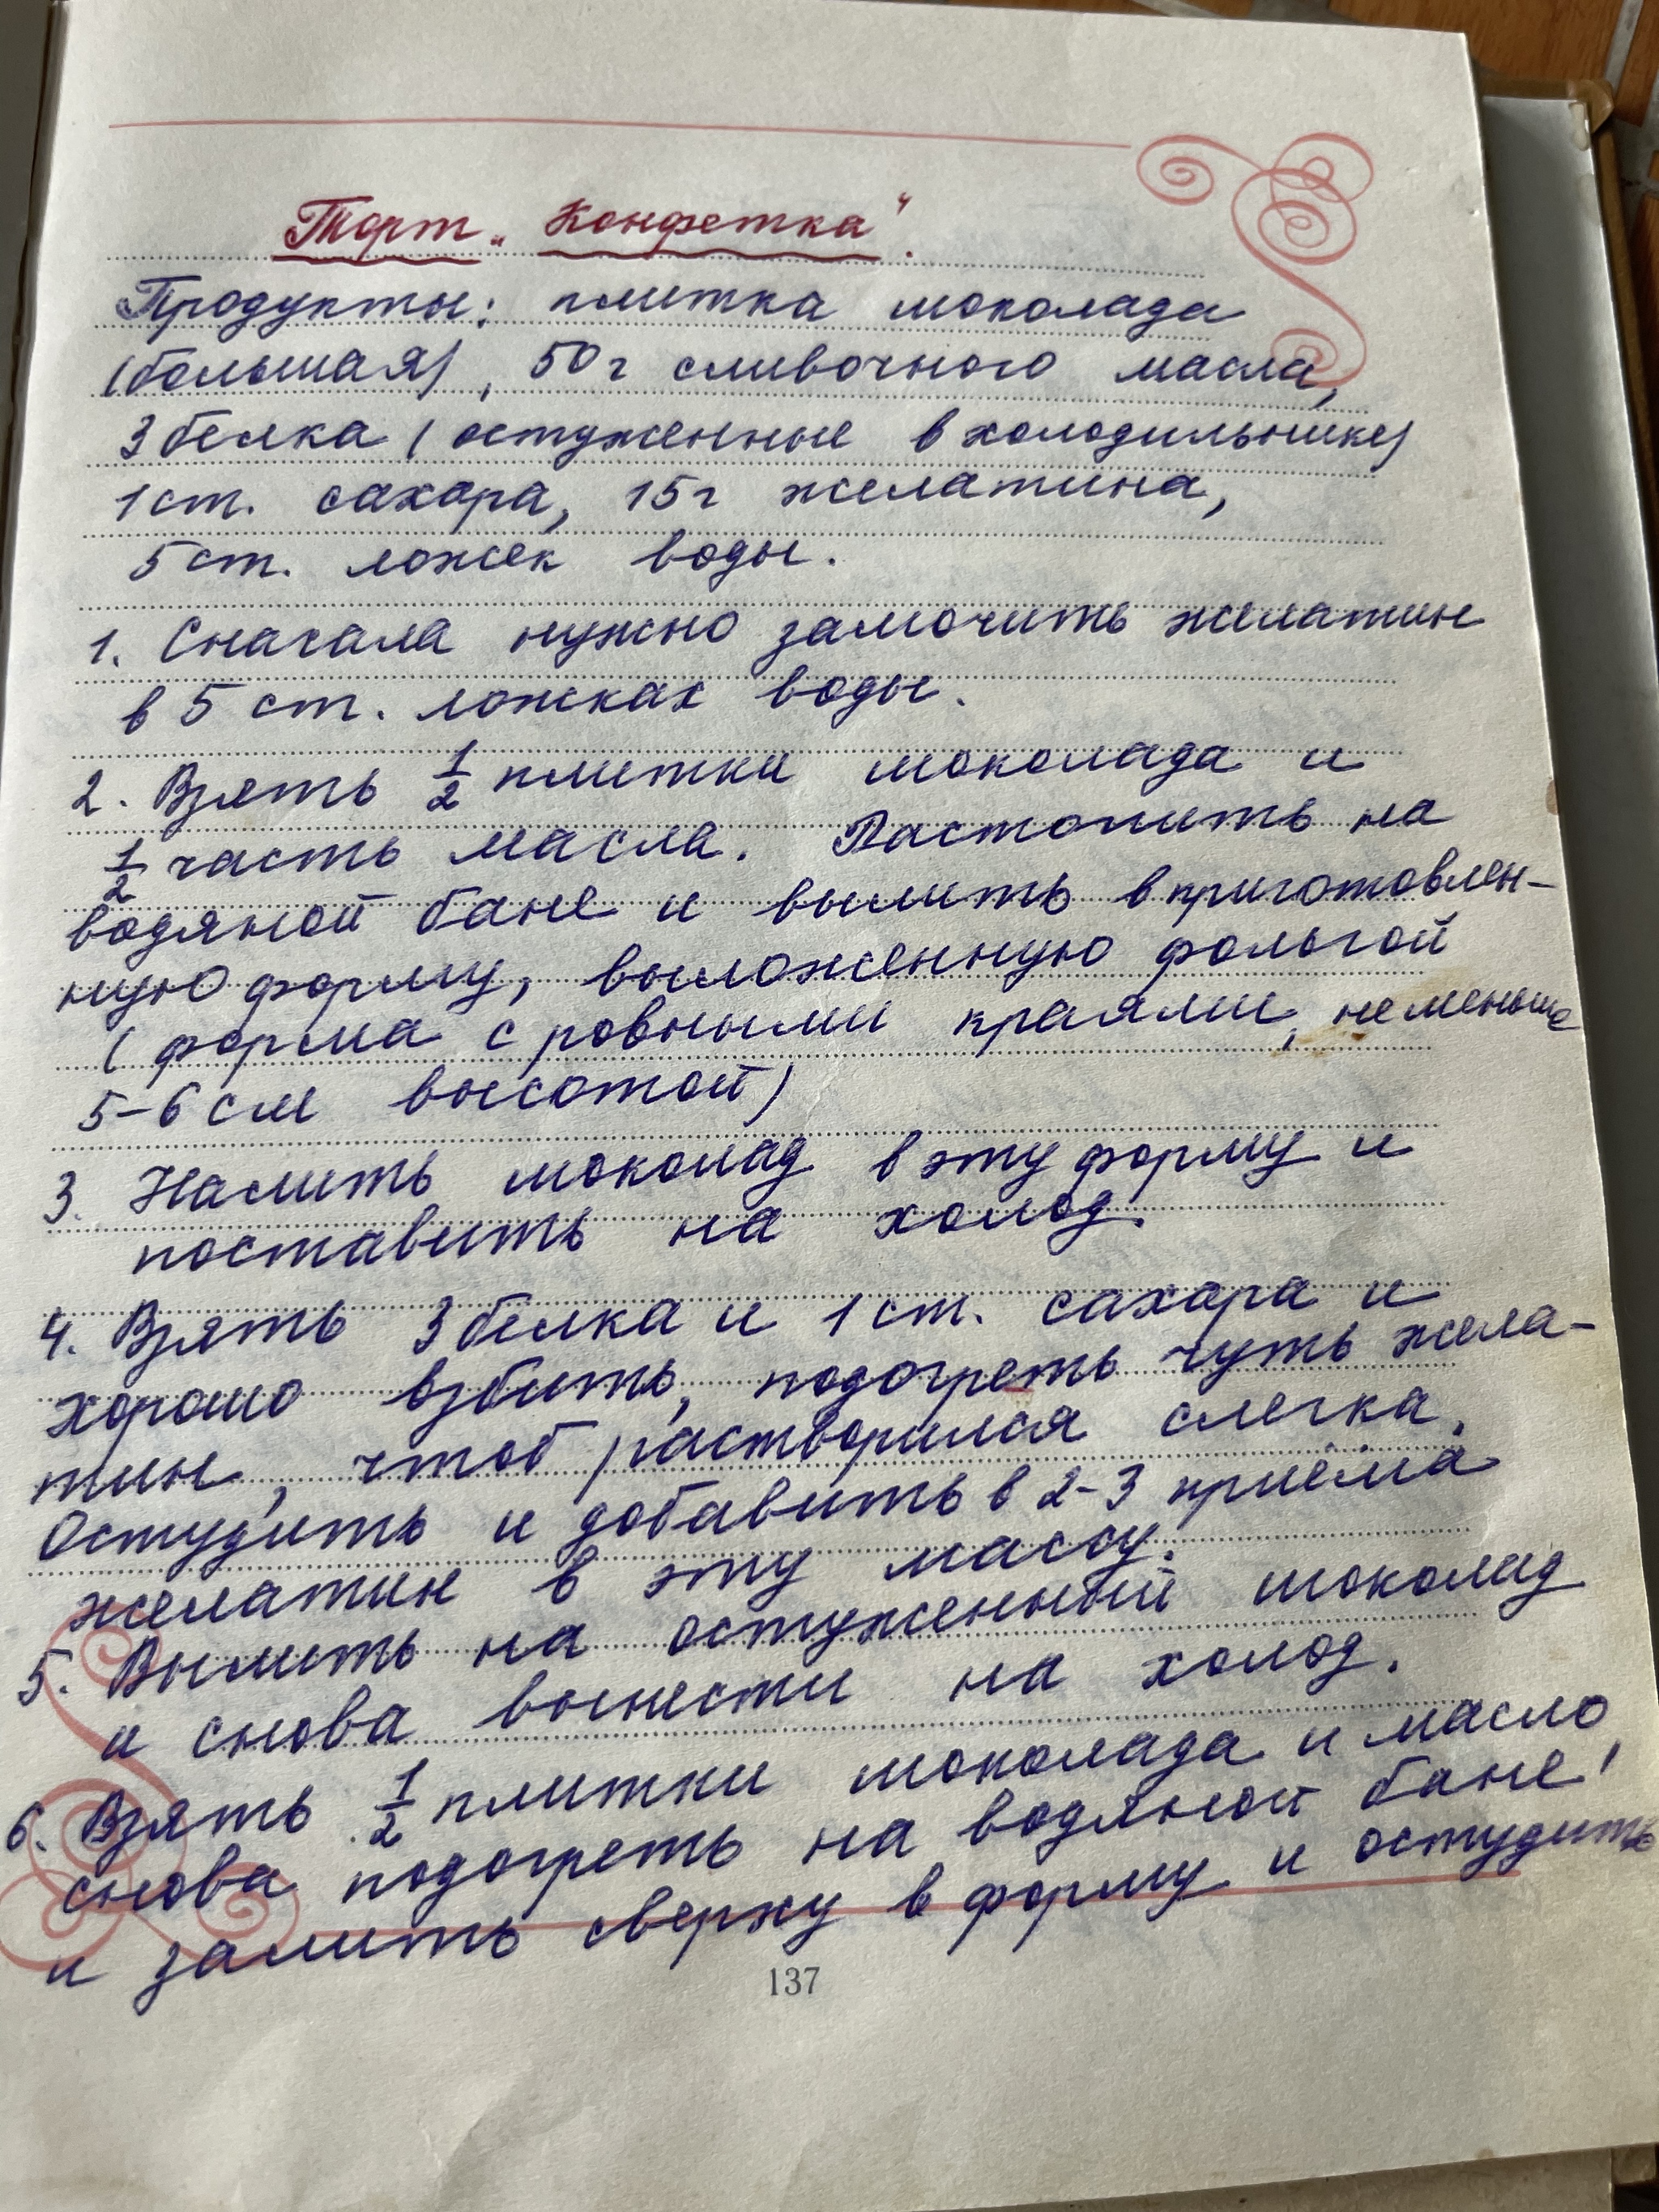 Торт „Конфетка".
Продукты: плитка шоколада
(большая), 50 г сливочного масла,
3 белка (остуженные в холодильнике)
1 ст. сахара, 15 г желатина,
5 ст. ложек воды.
1. Сначала нужно замочить желатин
в 5 ст. ложках воды.
2. Взять 1/2 плитки шоколада и
1/2 часть масла. Растопить на
водяной бане и вылить в приготовлен-
ную форму, выложенную фольгой
(форма с ровными краями, не меньше
5-6 см высотой)
3. Налить шоколад в эту форму и
поставить на холод.
4. Взять 3 белка и 1 ст. сахара и
хорошо взбить, подогреть чуть жела-
тин, чтоб растворился слегка.
Остудить и добавить в 2-3 приёма
желатин в эту массу.
5. Вылить на остуженный шоколад
и снова вынести на холод.
6. Взять 1/2 плитки шоколада и масло,
снова подогреть на водяной бане!
и залить сверху в форму и остудить
137